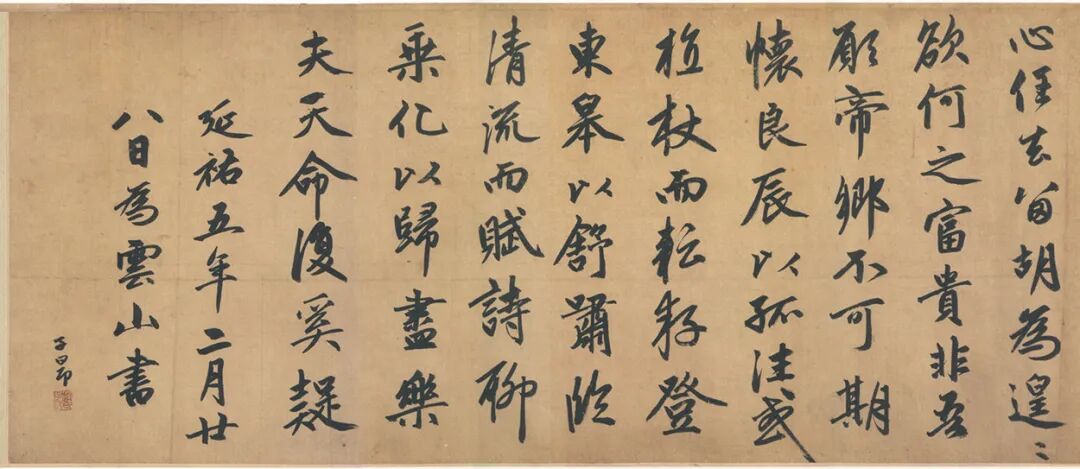 心任去留胡為遑〻
欲何之富貴非吾
願帝鄉不可期
懷良辰以孤往或
植杖而耘耔登
東皋以舒嘯臨
清流而賦詩聊
乘化以歸盡樂
夫天命復奚疑
延祐五年二月廿
八日為雲山書
子昂